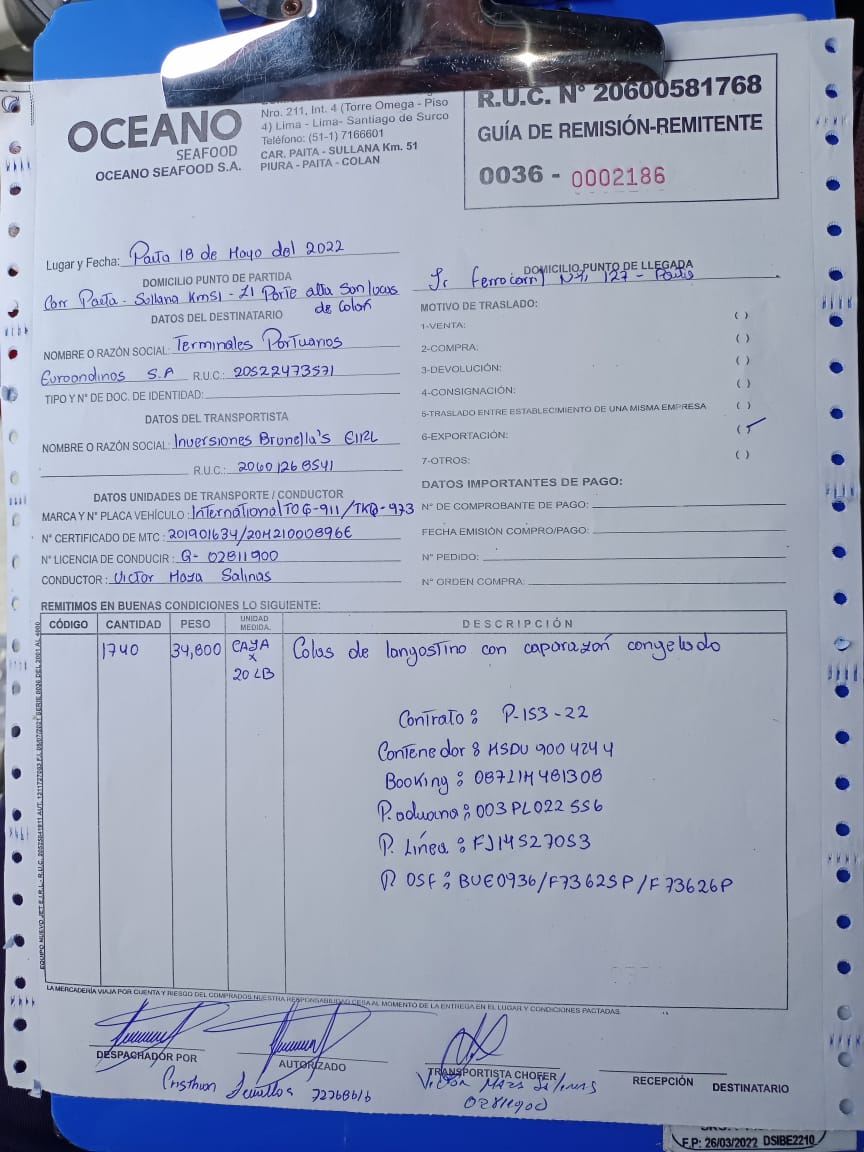 OCEANO
SEAFOOD
OCEANO SEAFOOD S.A.
Nro. 211, Int. 4 (Torre Omega - Piso
4) Lima - Lima- Santiago de Surco
Teléfono: (51-1) 7166601
CAR. PAITA - SULLANA Km. 51
PIURA - PAITA - COLAN
R.U.C. N° 20600581768
GUÍA DE REMISIÓN-REMITENTE
0036 - 0002186
Lugar y Fecha: Paita 18 de Mayo del 2022
DOMICILIO PUNTO DE PARTIDA
Carr Paita - Sullana Km51 - Z1 Parte alta San Lucas
de Colán
DOMICILIO PUNTO DE LLEGADA
Jr Ferrocarril N° 127 - Paita
DATOS DEL DESTINATARIO
NOMBRE O RAZÓN SOCIAL: Terminales Portuarios
Euroandinos S.A R.U.C.: 20522473571
TIPO Y N° DE DOC. DE IDENTIDAD:
DATOS DEL TRANSPORTISTA
NOMBRE O RAZÓN SOCIAL: Inversiones Brunella's EIRL
R.U.C.: 20601268541
DATOS UNIDADES DE TRANSPORTE / CONDUCTOR
MARCA Y N° PLACA VEHÍCULO: International TOG-911/TKQ-973
N° CERTIFICADO DE MTC: 201901634/20M21000896E
N° LICENCIA DE CONDUCIR: Q- 02811900
CONDUCTOR: Victor Maza Salinas
MOTIVO DE TRASLADO:
1-VENTA: ( )
2-COMPRA: ( )
3-DEVOLUCIÓN: ( )
4-CONSIGNACIÓN: ( )
5-TRASLADO ENTRE ESTABLECIMIENTO DE UNA MISMA EMPRESA ( )
6-EXPORTACIÓN: (✓
7-OTROS: ( )
DATOS IMPORTANTES DE PAGO:
N° DE COMPROBANTE DE PAGO:
FECHA EMISIÓN COMPRO/PAGO:
N° PEDIDO:
N° ORDEN COMPRA:
REMITIMOS EN BUENAS CONDICIONES LO SIGUIENTE:
CÓDIGO CANTIDAD PESO UNIDAD MEDIDA. DESCRIPCIÓN
1740 34,800 CAJA x 20 LB Colas de langostino con caparazón congelado
Contrato: P-153-22
Contenedor: MSDU 900 424 4
Booking: 087LIM481308
P. aduana: 003 PL022 556
P. Línea: FJ14527053
P. OSF: BUE0936/F73625P/F73626P
LA MERCADERÍA VIAJA POR CUENTA Y RIESGO DEL COMPRADOS NUESTRA RESPONSABILIDAD CESA AL MOMENTO DE LA ENTREGA EN EL LUGAR Y CONDICIONES PACTADAS.
DESPACHADOR POR
AUTORIZADO
TRANSPORTISTA CHOFER
RECEPCIÓN
DESTINATARIO
Victor Maza Salinas
02811900
F.P: 26/03/2022 DSIBE2210